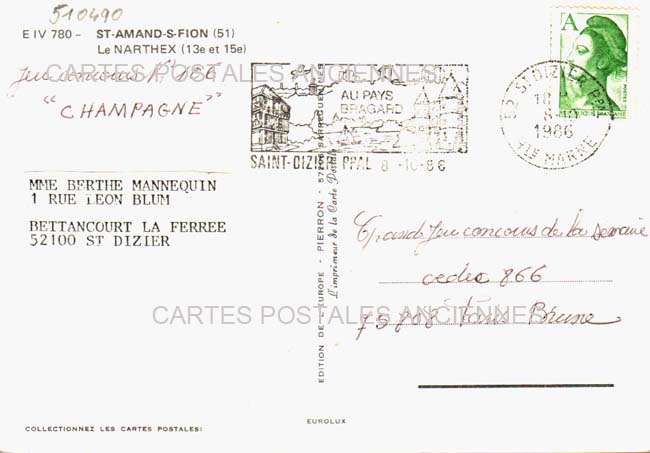 510490
E IV 780 - ST-AMAND-S-FION (51)
Le NARTHEX (13e et 15e)
Jeu concours N° 186
"CHAMPAGNE"
CARTES POSTALES ANCIENNES
AU PAYS
BRAGARD
SAINT-DIZIER PPAL 8 -10-86
A
52 ST DIZIER PPAL
18 H
8-10
1986
HTE MARNE
MME BERTHE MANNEQUIN
1 RUE LEON BLUM
BETTANCOURT LA FERREE
52100 ST DIZIER
EDITION DE L'EUROPE - PIERRON - 57206 SARREGUEMINES
L'imprimeur de la Carte Postale
Grand Jeu concours de la semaine
cedex 866
75808 Paris Brune
CARTES POSTALES ANCIENNES
COLLECTIONNEZ LES CARTES POSTALES!
EUROLUX